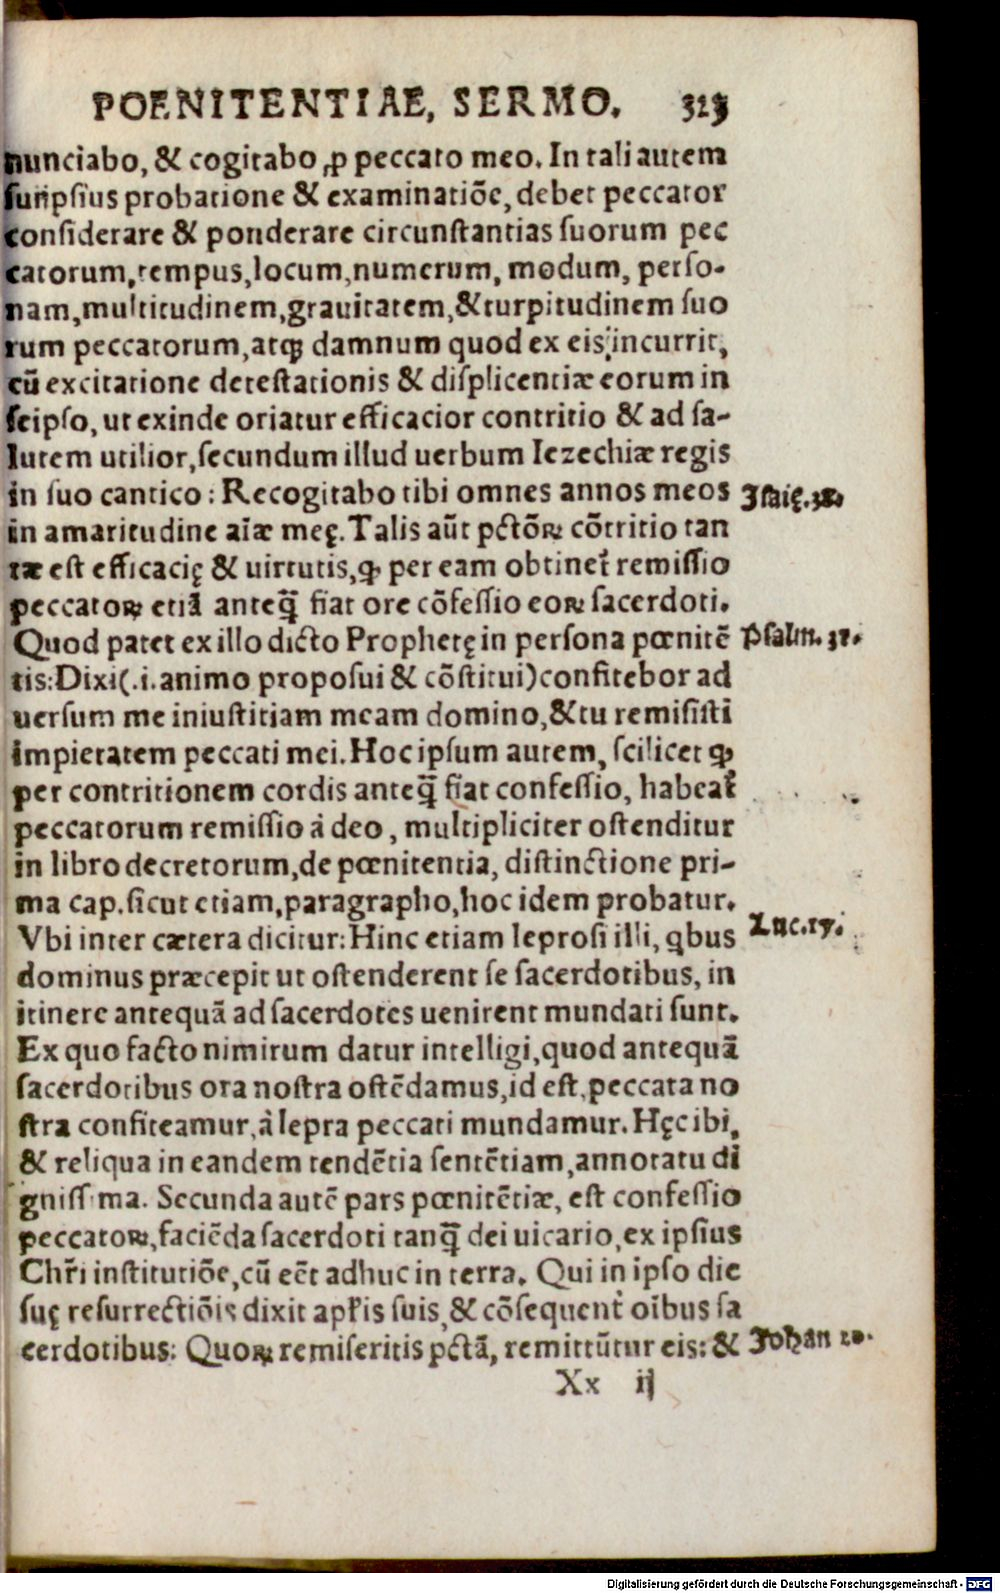 POENITENTIAE, SERMO. 323
nunciabo, & cogitabo ꝓ peccato meo. In tali autem
suiipsius probatione & examinatiõe, debet peccator
considerare & ponderare circunstantias suorum pec
catorum, tempus, locum, numerum, modum, perso-
nam, multitudinem, grauitatem, & turpitudinem suo
rum peccatorum, atqꝫ damnum quod ex eis incurrit,
cũ excitatione detestationis & displicentiæ eorum in
seipso, ut exinde oriatur efficacior contritio & ad sa-
lutem utilior, secundum illud uerbum Iezechiæ regis
in suo cantico: Recogitabo tibi omnes annos meos
Isaię. 38.
in amaritudine aĩæ meę. Talis aũt pctõꝝ cõtritio tan
tæ est efficacię & uirtutis, ꝙ per eam obtinet᷑ remissio
peccatoꝝ etiã anteq̃ fiat ore cõfessio eoꝝ sacerdoti.
Quod patet ex illo dicto Prophetę in persona pœnitẽ
Psalm. 31.
tis: Dixi (.i. animo proposui & cõstitui) confitebor ad
uersum me iniustitiam meam domino, & tu remisisti
impietatem peccati mei. Hoc ipsum autem, scilicet ꝙ
per contritionem cordis anteq̃ fiat confessio, habeat᷑
peccatorum remissio à deo, multipliciter ostenditur
in libro decretorum, de pœnitentia, distinctione pri-
ma cap. sicut etiam, paragrapho, hoc idem probatur.
Vbi inter cætera dicitur: Hinc etiam leprosi illi, q̃bus
Luc. 17.
dominus præcepit ut ostenderent se sacerdotibus, in
itinere antequã ad sacerdotes uenirent mundati sunt.
Ex quo facto nimirum datur intelligi, quod antequã
sacerdotibus ora nostra ostẽdamus, id est, peccata no
stra confiteamur, à lepra peccati mundamur. Hęc ibi,
& reliqua in eandem tendẽtia sentẽtiam, annotatu di
gnissima. Secunda autẽ pars pœnitẽtiæ, est confessio
peccatoꝝ, faciẽda sacerdoti tanq̃ dei uicario, ex ipsius
Chr̃i institutiõe, cũ eẽt adhuc in terra. Qui in ipso die
suę resurrectiõis dixit apl̃is suis, & cõsequent᷑ oĩbus sa
cerdotibus: Quoꝝ remiseritis pctã, remittũtur eis: &
Johan 20.
Xx ij
Digitalisierung gefördert durch die Deutsche Forschungsgemeinschaft - DFG